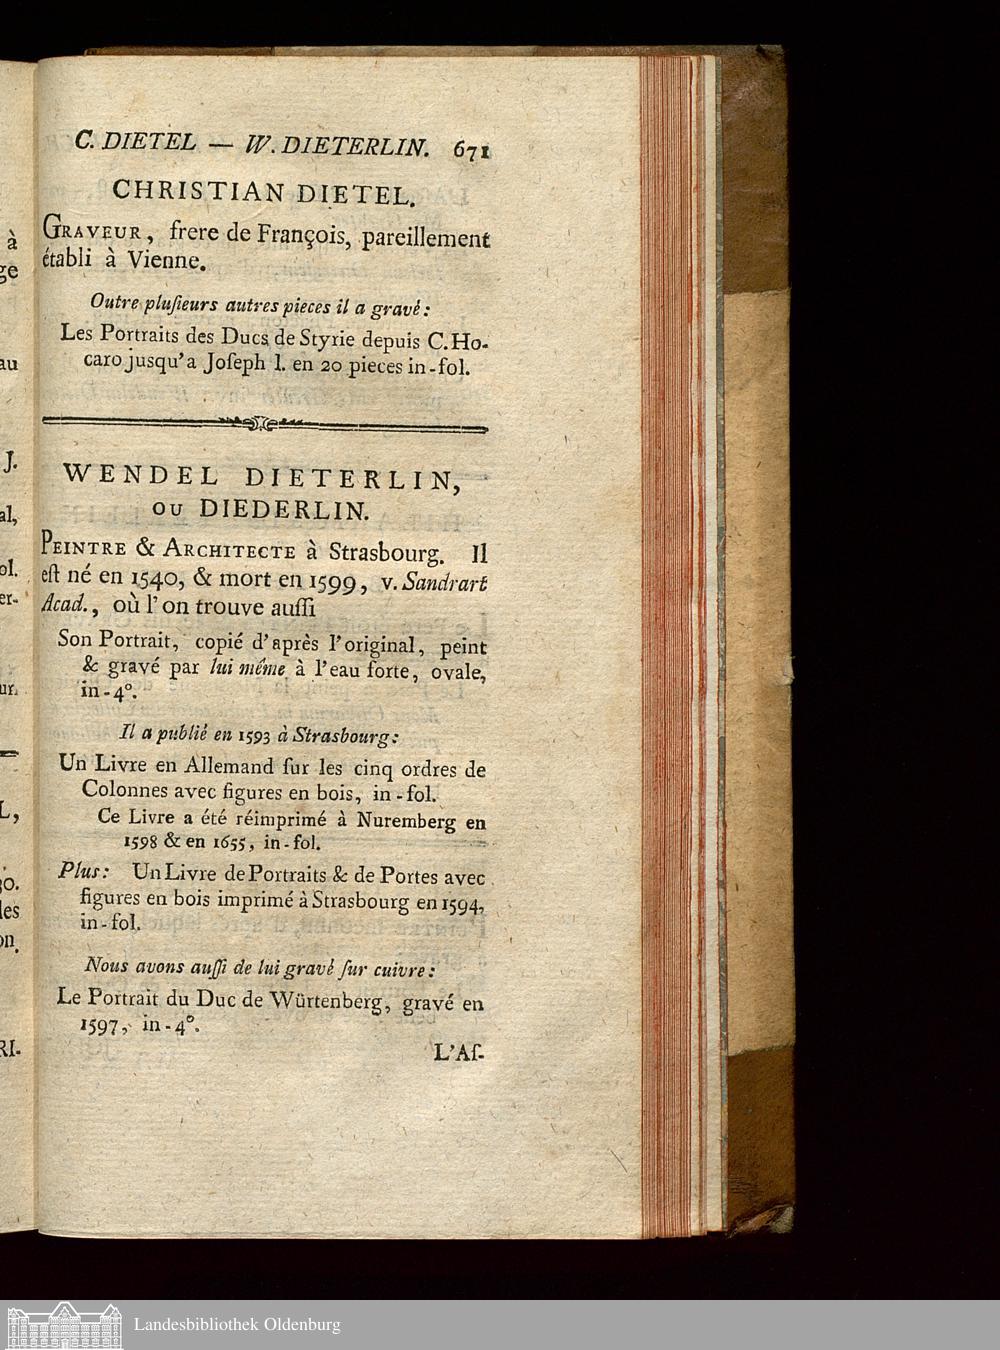 C. DIETEL — W. DIETERLIN. 671
CHRISTIAN DIETEL.
GRAVEUR, frere de François, pareillement
établi à Vienne.
Outre pluſieurs autres pieces il a gravé:
Les Portraits des Ducs de Styrie depuis C. Ho-
caro jusqu'a Joſeph I. en 20 pieces in-fol.
WENDEL DIETERLIN,
OU DIEDERLIN.
PEINTRE & ARCHITECTE à Strasbourg. Il
eſt né en 1540, & mort en 1599, v. Sandrart
Acad., où l'on trouve auſſi
Son Portrait, copié d'après l'original, peint
& gravé par lui même à l'eau forte, ovale,
in-4°.
Il a publié en 1593 à Strasbourg:
Un Livre en Allemand ſur les cinq ordres de
Colonnes avec figures en bois, in-fol.
Ce Livre a été réimprimé à Nuremberg en
1598 & en 1655, in-fol.
Plus: Un Livre de Portraits & de Portes avec
figures en bois imprimé à Strasbourg en 1594,
in-fol.
Nous avons auſſi de lui gravé ſur cuivre:
Le Portrait du Duc de Würtenberg, gravé en
1597, in-4°.
L'Aſ-
à
ge
au
J.
al,
ol.
er-
ur.
L,
30.
les
on.
RI-
Landesbibliothek Oldenburg